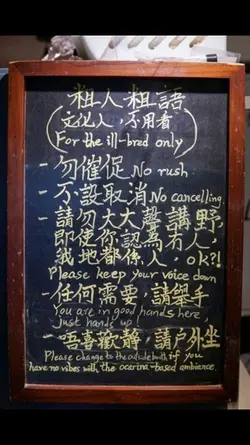 粗人粗語
(文化人,不用看)
For the ill-bred only
- 勿催促 No rush.
- 不設取消 No cancelling.
- 請勿大大聲講野,
即使你認為冇人,
我地都係人, ok?!
Please keep your voice down
- 任何需要,請舉手
You are in good hands here,
just hands up!
- 唔喜歡靜,請戶外坐
Please change to the outside booth if you
have no vibes with the ocarina-based ambiance.